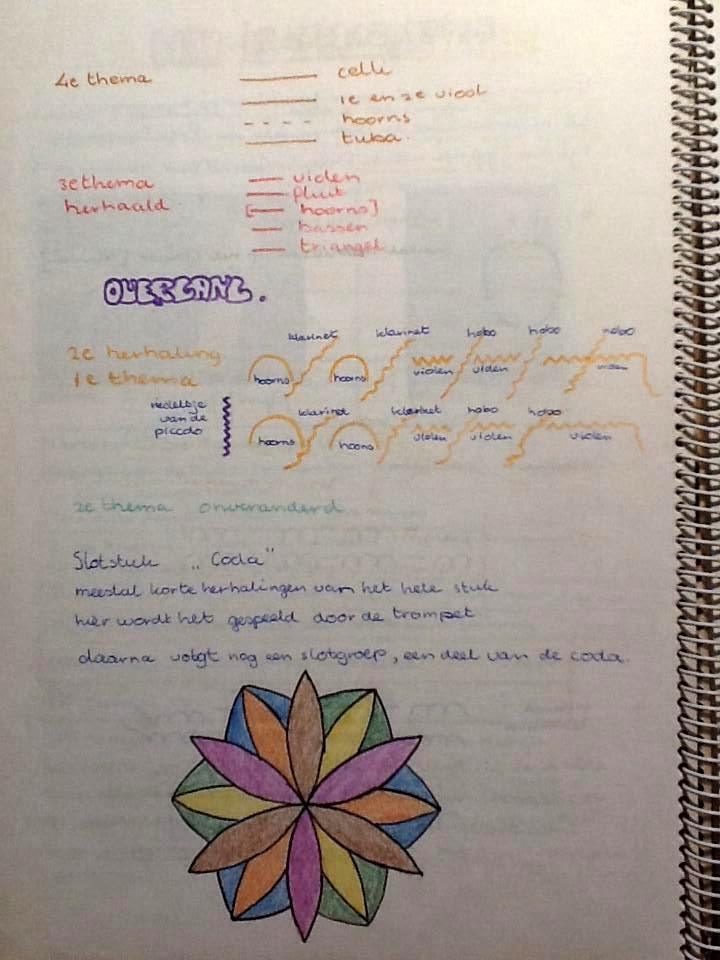 4e thema celli
1e en 2e viool
hoorns
tuba.
3e thema violen
herhaald fluit
[hoorns]
bassen
triangel
klarinet klarinet hobo hobo hobo
2e herhaling
1e thema hoorns hoorns violen violen violen
van de klarinet klarinet hobo hobo
piccolo hoorns hoorns violen violen violen
2e thema onveranderd
Slotstuk „Coda"
meestal korte herhalingen van het hele stuk
hier wordt het gespeeld door de trompet
daarna volgt nog een slotgroep, een deel van de coda.